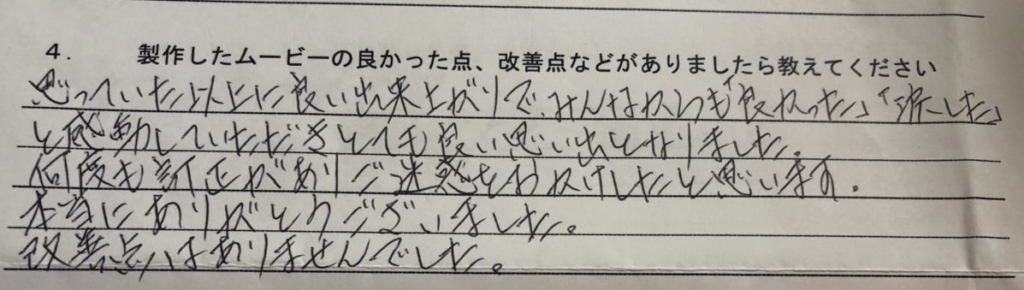 4. 製作したムービーの良かった点、改善点などがありましたら教えてください
思っていた以上に良い出来上がりで、みんなからも「良かった」「涙した」
と感動していただきとても良い思い出となりました。
何度も訂正がありご迷惑をおかけしたと思います。
本当にありがとうございました。
改善点はありませんでした。